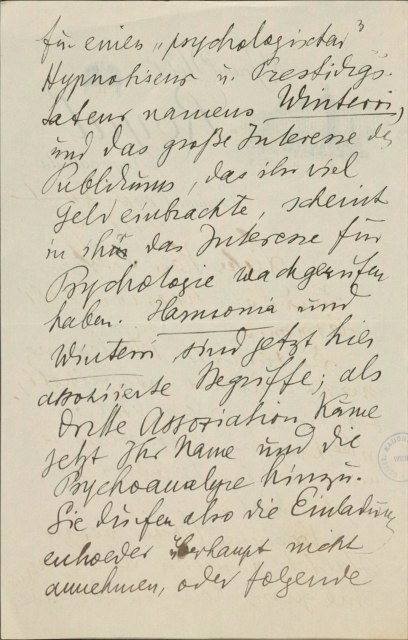 3
für einen „psychologischen
Hypnotiseur u. Prestidigi-
tateur namens Winterri,
und das große Interesse des
Publikums, das ihr viel
Geld einbrachte, scheint
in ihr das Interesse für
Psychologie wachgerufen
haben. Harmonia und
Winterri sind jetzt hier
assoziierte Begriffe; als
dritte Association käme
jetzt Ihr Name und die
Psychoanalyse hinzu.
Sie dürfen also die Einladung
entweder überhaupt nicht
annehmen, oder folgende